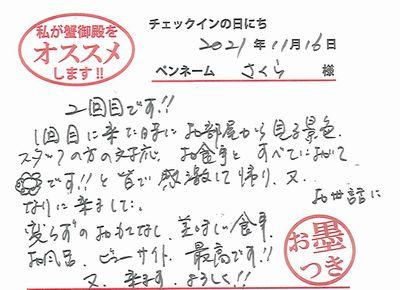 私が蟹御殿を
オススメ
します!!
チェックインの日にち
2021年11月16日
ペンネーム さくら 様
2回目です!!
1回目に来た時にお部屋から見る景色、
スタッフの方の対応、お食事と すべてにおいて
です!!と皆で感激して帰り、又、
お世話に
なりに来ました。
変らずのおもてなし、美味しい食事、
お風呂、ビューサイド、最高です!!
又、来ます、よろしく!!
お墨
つき